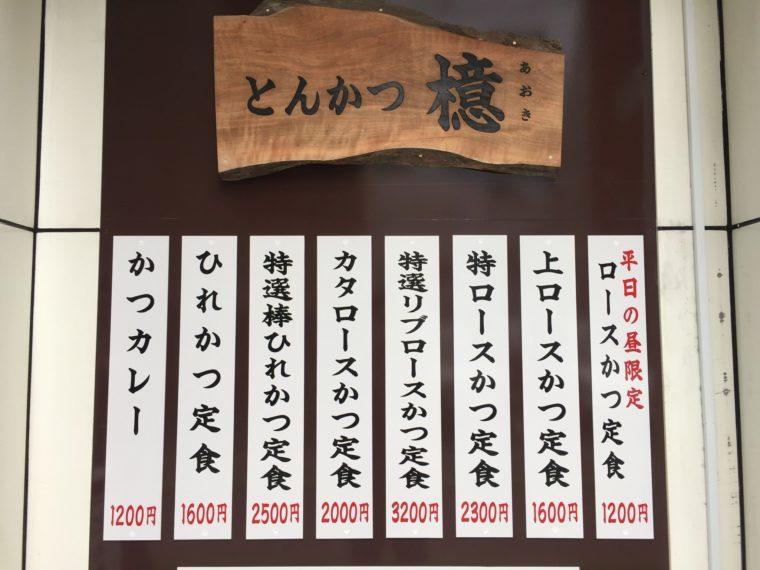 とんかつ 檍
あおき
平日の昼限定
ロースかつ定食
1200円
上ロースかつ定食
1600円
特ロースかつ定食
2300円
特選リブロースかつ定食
3200円
カタロースかつ定食
2000円
特選棒ひれかつ定食
2500円
ひれかつ定食
1600円
かつカレー
1200円